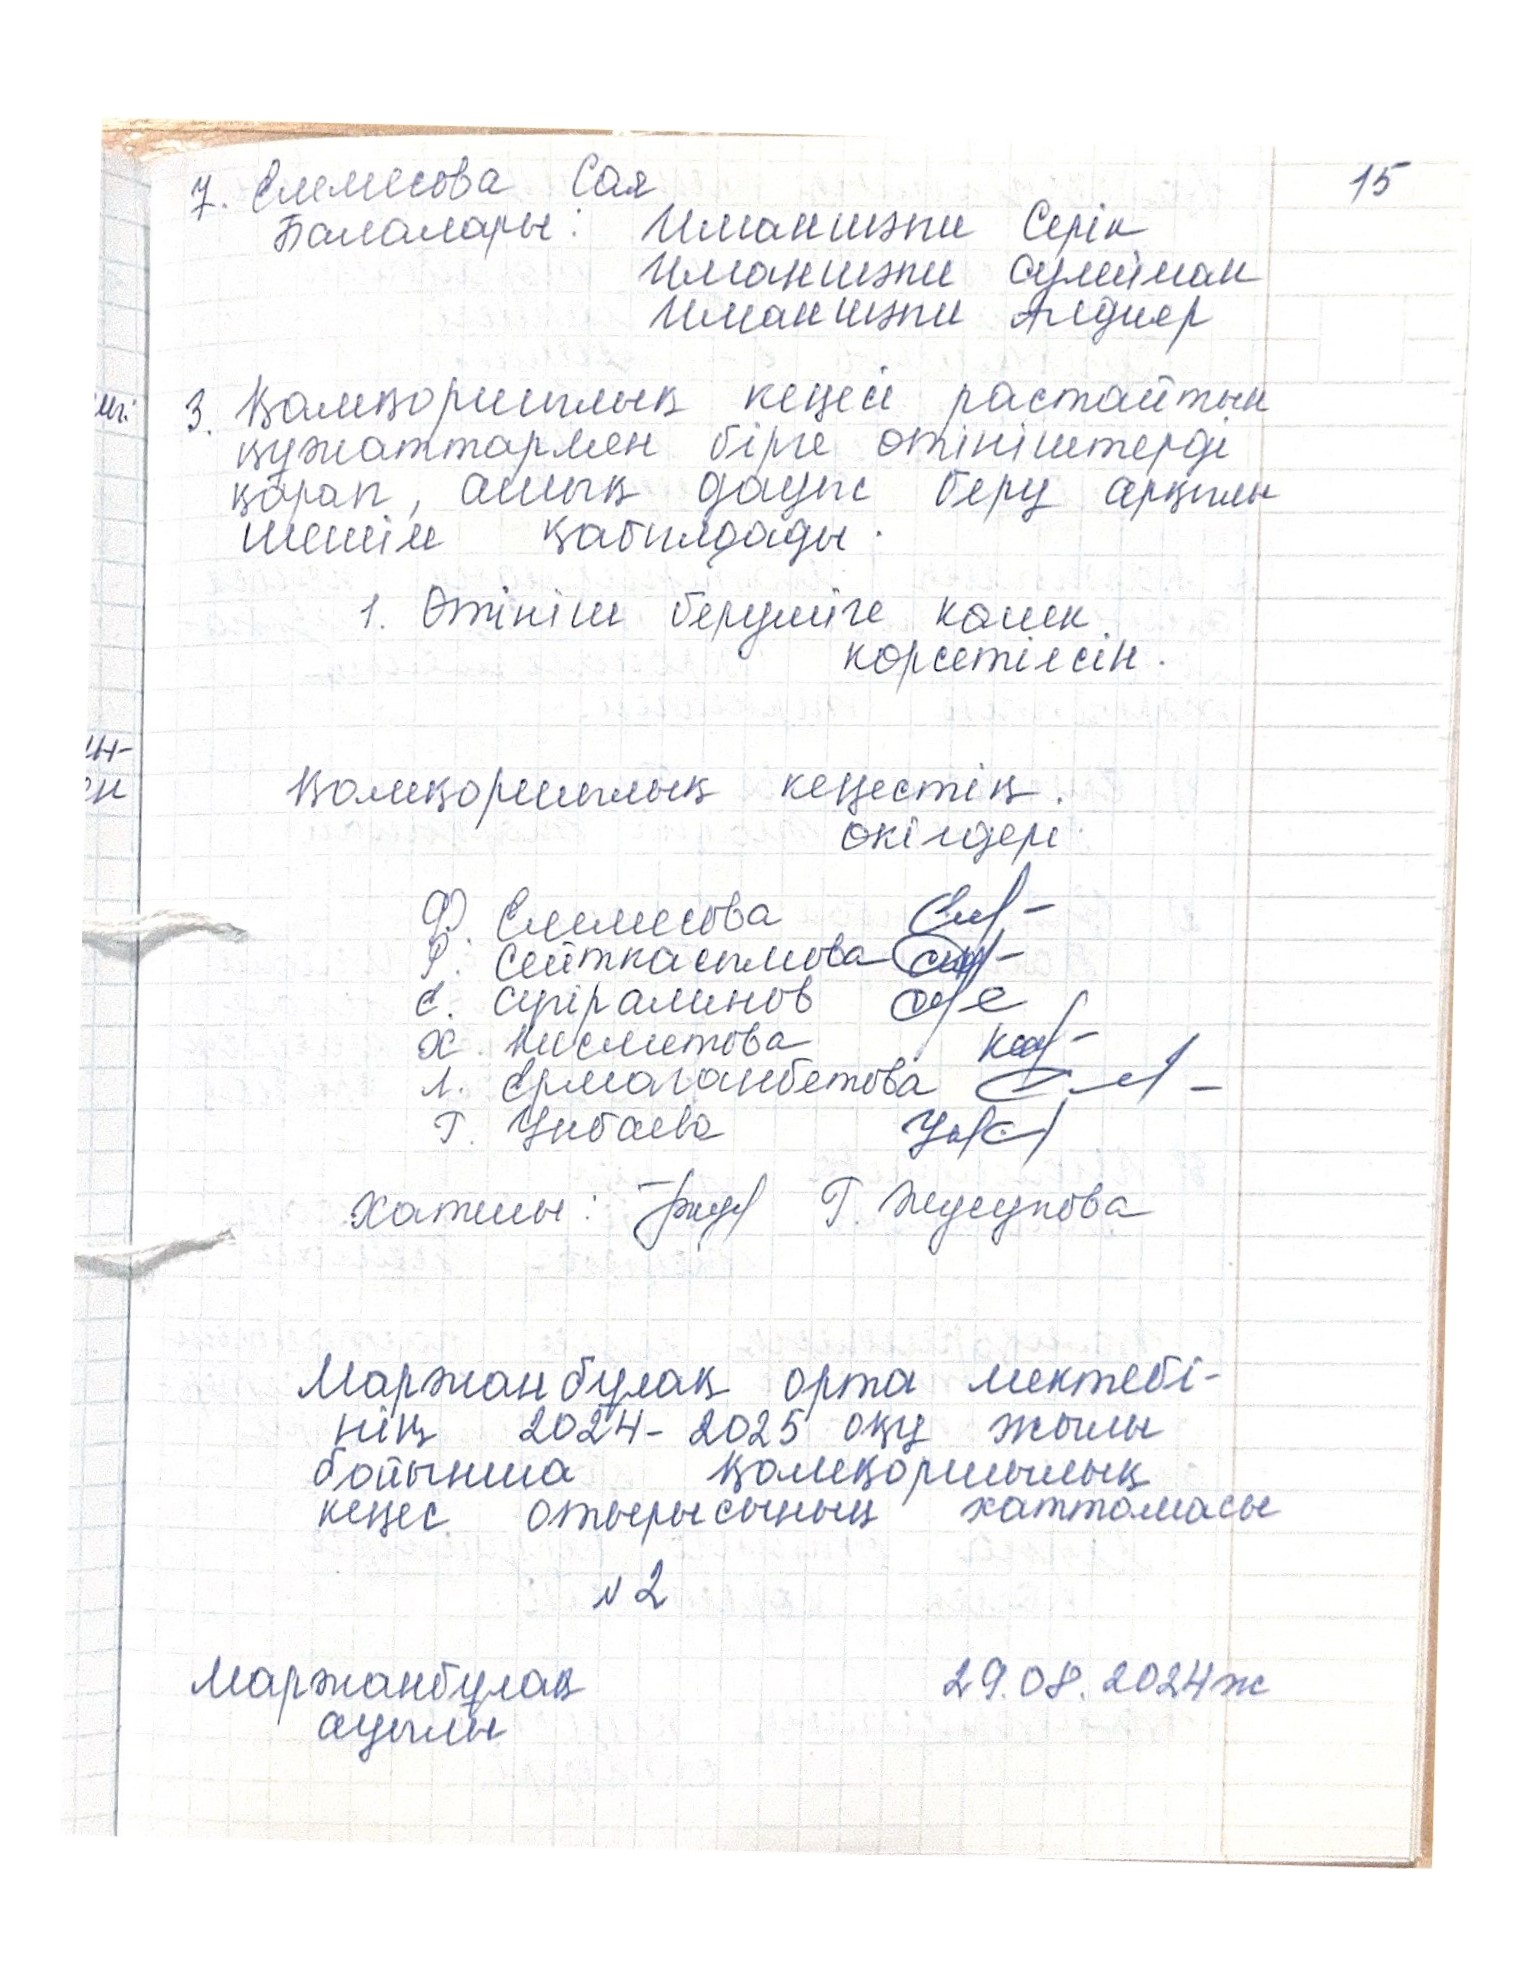 15
7. Елемесова Сая
Балалары: Иманшәпи Серік
Иманшәпи Сулейман
Иманшәпи Алдияр
3. Қамқоршылық кеңесі растайтын
құжаттармен бірге өтініштерді
қарап, ашық дауыс беру арқылы
шешім қабылдады.
1. Өтініш берушіге көмек
көрсетілсін.
Қамқоршылық кеңестің
өкілдері
Ф. Елемесова
Р. Сейткасымова
Е. Сүгіралинов
Х. Кисметова
Л. Ермаганбетова
Г. Укибаева
Хатшы: Г. Жусупова
Маржанбұлақ орта мектебі-
нің 2024-2025 оқу жылы
бойынша қамқоршылық
кеңес отырысының хаттамасы
№2
Маржанбұлақ 29.08.2024ж
ауылы